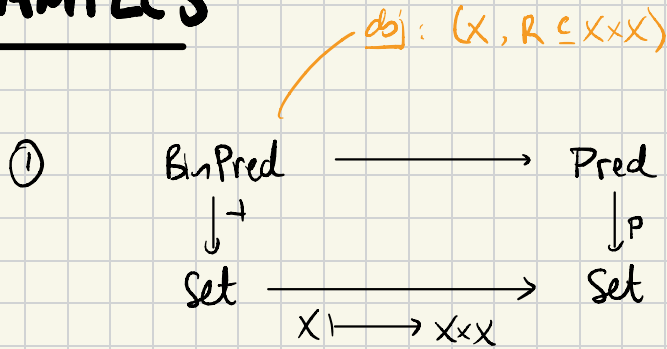 AMPLES
obj: (X, R ⊆ X×X)
① BinPred ⟶ Pred
↓ ↓ p
Set ⟶ Set
X ⟼ X×X